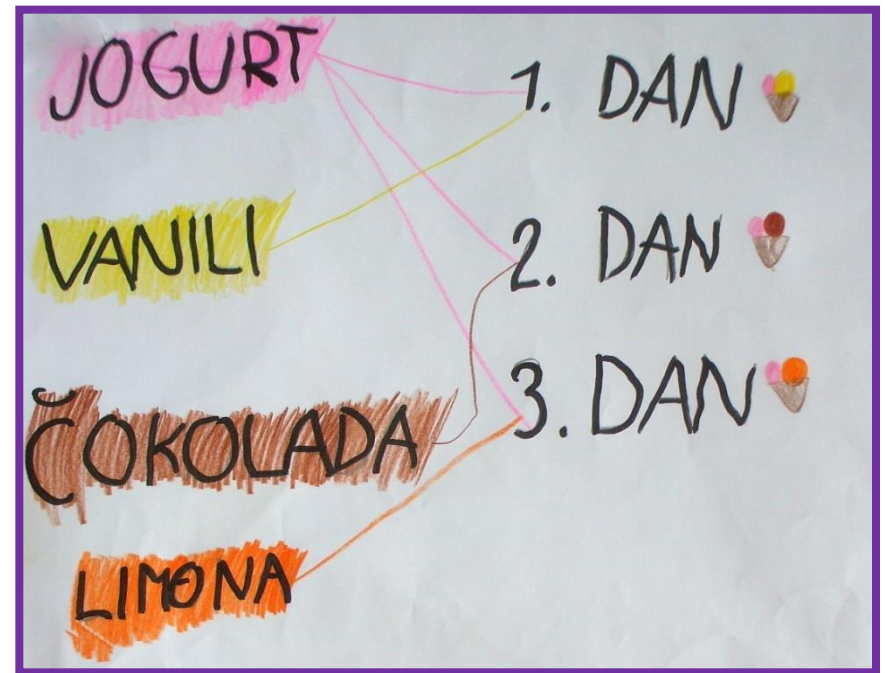 JOGURT
VANILI
ČOKOLADA
LIMONA
1. DAN
2. DAN
3. DAN